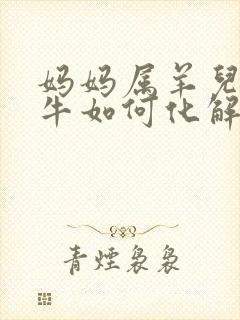 妈妈属羊兒
牛如何化解
青煙袅袅